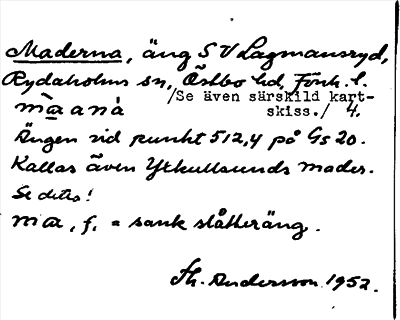 Maderna, äng S V Lagmansryd,
Rydaholms sn, Östbo hd, Jönk. l.
/Se även särskild kart-
skiss./ 4.
Ängen vid punkt 512,4 på Gs 20.
Kallas även Ytkullsunds mader.
Se detta!
f. = sank slåtteräng.
Th. Andersson 1952.